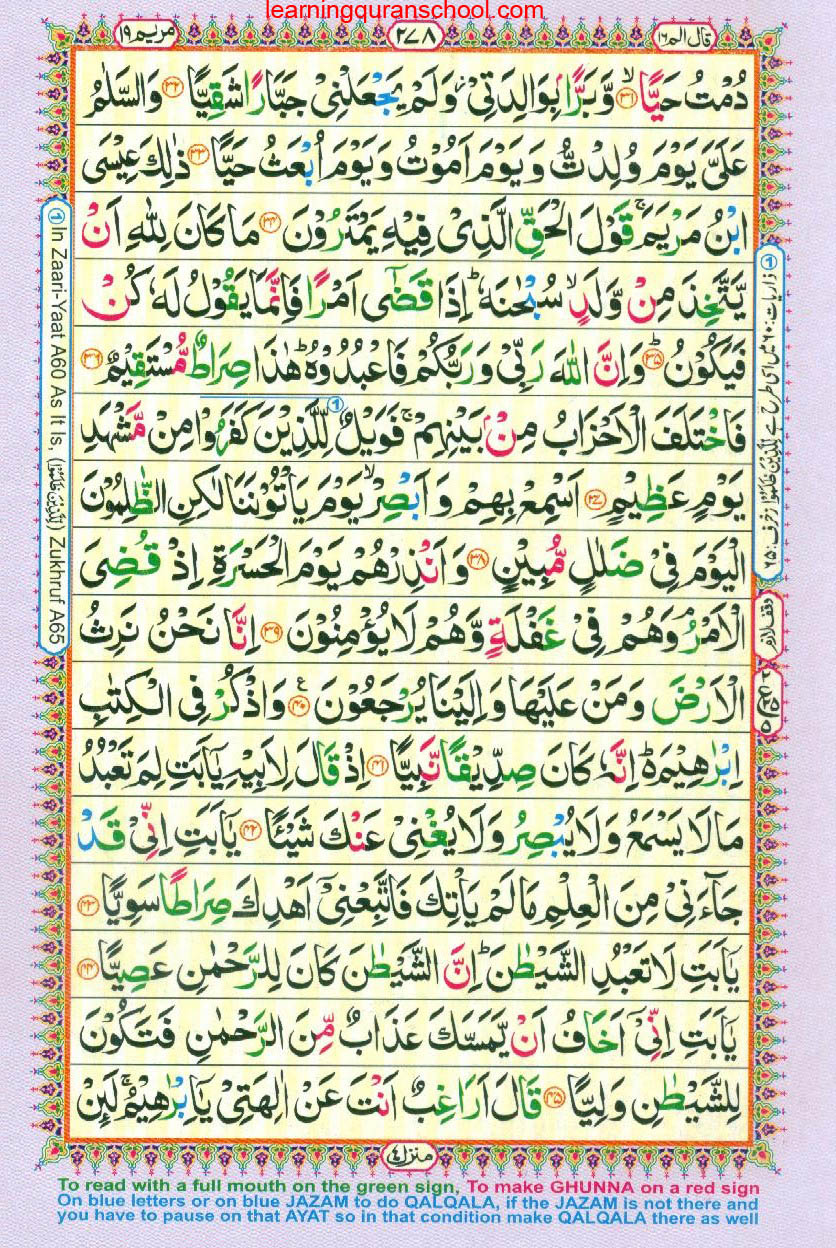 learningquranschool.com
مريم ١٩
٢٧٨
قال الم ١٦
دُمْتُ حَيًّا ۙ‏ ﴿۳۱﴾ وَّبَرًّۢا بِوَالِدَتِىْ وَلَمْ يَجْعَلْنِىْ جَبَّارًا شَقِيًّا‏ ﴿۳۲﴾ وَالسَّلٰمُ
عَلَىَّ يَوْمَ وُلِدْتُّ وَيَوْمَ اَمُوْتُ وَيَوْمَ اُبْعَثُ حَيًّا‏ ﴿۳۳﴾ ذٰ لِكَ عِيْسَى
ابْنُ مَرْيَمَ ۚ قَوْلَ الْحَـقِّ الَّذِىْ فِيْهِ يَمْتَرُوْنَ‏ ﴿۳۴﴾ مَا كَانَ لِلّٰهِ اَنْ
يَّتَّخِذَ مِنْ وَّلَدٍ ۙ سُبْحٰنَهٗ ؕ اِذَا قَضٰٓى اَمْرًا فَاِنَّمَا يَقُوْلُ لَهٗ كُنْ
فَيَكُوْنُ ؕ‏ ﴿۳۵﴾ وَاِنَّ اللّٰهَ رَبِّىْ وَرَبُّكُمْ فَاعْبُدُوْهُ ؕ هٰذَا صِرَاطٌ مُّسْتَقِيْمٌ‏ ﴿۳۶﴾
فَاخْتَلَفَ الْاَحْزَابُ مِنْۢ بَيْنِهِمْ ۚ فَوَيْلٌ لِّـلَّذِيْنَ كَفَرُوْا مِنْ مَّشْهَدِ
يَوْمٍ عَظِيْمٍ‏ ﴿۳۷﴾ اَسْمِعْ بِهِمْ وَاَبْصِرْ ۙ يَوْمَ يَاْتُوْنَنَا لٰـكِنِ الظّٰلِمُوْنَ
الْيَوْمَ فِىْ ضَلٰلٍ مُّبِيْنٍ‏ ﴿۳۸﴾ وَاَنْذِرْهُمْ يَوْمَ الْحَسْرَةِ اِذْ قُضِىَ
الْاَمْرُ ۘ وَهُمْ فِىْ غَفْلَةٍ وَّهُمْ لَا يُؤْمِنُوْنَ‏ ﴿۳۹﴾ اِنَّا نَحْنُ نَرِثُ
الْاَرْضَ وَمَنْ عَلَيْهَا وَاِلَيْنَا يُرْجَعُوْنَ‏ ﴿۴۰﴾ ع وَاذْكُرْ فِى الْكِتٰبِ
اِبْرٰهِيْمَ ؕ اِنَّهٗ كَانَ صِدِّيْقًا نَّبِيًّا‏ ﴿۴۱﴾ اِذْ قَالَ لِاَبِيْهِ يٰۤاَبَتِ لِمَ تَعْبُدُ
مَا لَا يَسْمَعُ وَلَا يُبْصِرُ وَلَا يُغْنِىْ عَنْكَ شَيْئًـا‏ ﴿۴۲﴾ يٰۤاَبَتِ اِنِّىْ قَدْ
جَآءَنِىْ مِنَ الْعِلْمِ مَا لَمْ يَاْتِكَ فَاتَّبِعْنِىْۤ اَهْدِكَ صِرَاطًا سَوِيًّا‏ ﴿۴۳﴾
يٰۤاَبَتِ لَا تَعْبُدِ الشَّيْطٰنَ ؕ اِنَّ الشَّيْطٰنَ كَانَ لِلرَّحْمٰنِ عَصِيًّا‏ ﴿۴۴﴾
يٰۤاَبَتِ اِنِّىْۤ اَخَافُ اَنْ يَّمَسَّكَ عَذَابٌ مِّنَ الرَّحْمٰنِ فَتَكُوْنَ
لِلشَّيْطٰنِ وَلِيًّا‏ ﴿۴۵﴾ قَالَ اَرَاغِبٌ اَنْتَ عَنْ اٰلِهَتِىْ يٰۤاِبْرٰهِيْمُ ۚ لَٮِٕنْ
منزل ٤
① In Zaari-Yaat A60 As It Is, (لِّلَّذِيْنَ ظَلَمُوْا) Zukhruf A65
① ذاریات: ۶۰ میں اسی طرح ہے لِلَّذِيْنَ ظَلَمُوْا زخرف: ۶۵
وقف لازم
To read with a full mouth on the green sign, To make GHUNNA on a red sign
On blue letters or on blue JAZAM to do QALQALA, if the JAZAM is not there and
you have to pause on that AYAT so in that condition make QALQALA there as well